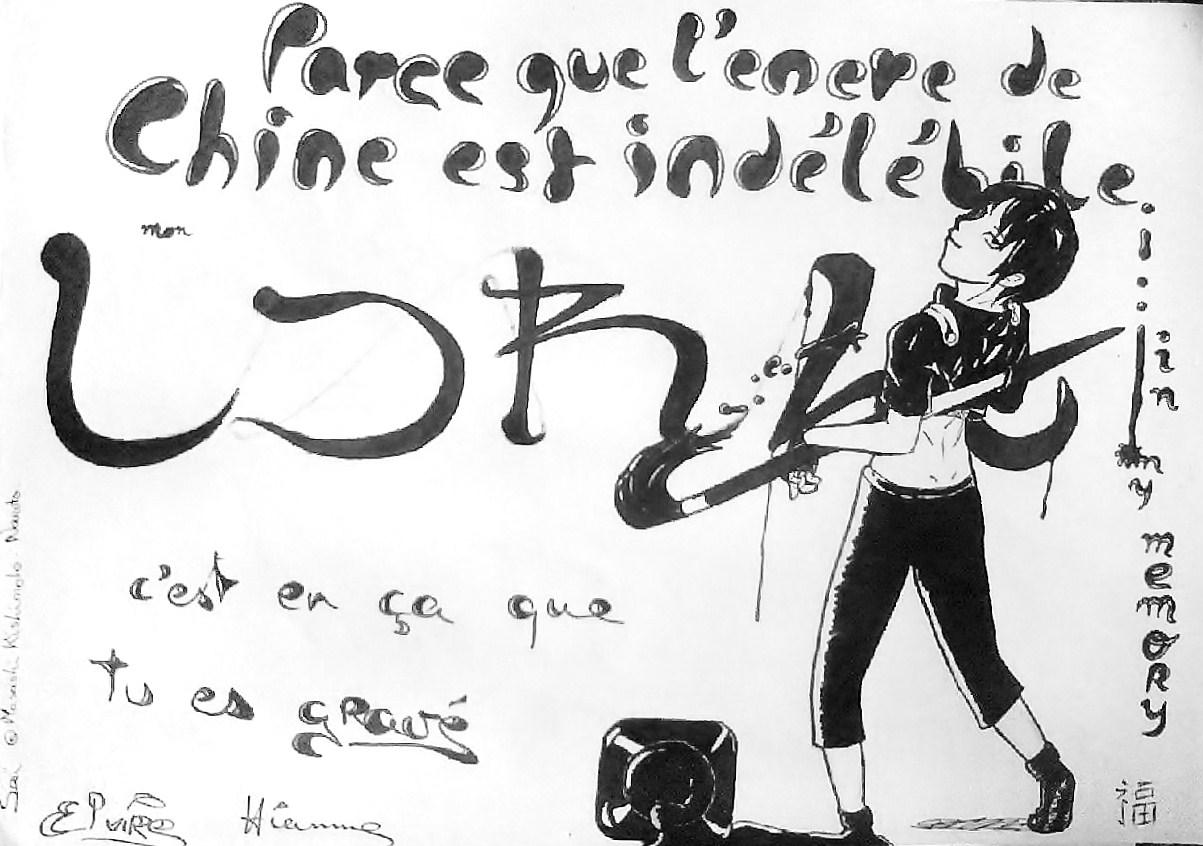 Parce que l'encre de
Chine est indélébile.
mon
しつれん
c'est en ça que
tu es gravé
in my memory
福
Saï © Masashi Kishimoto Naruto